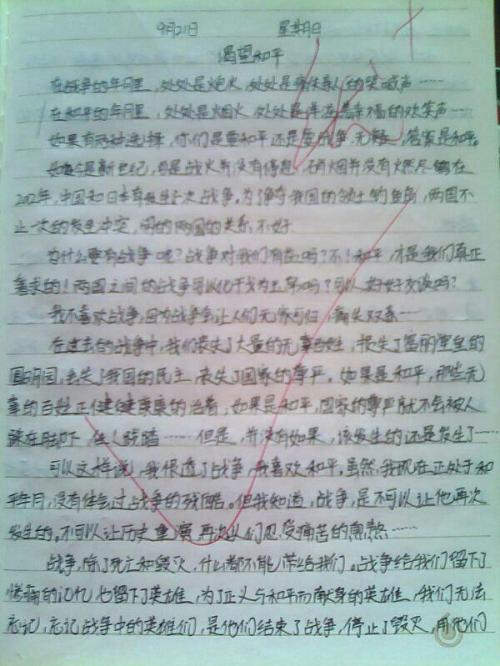 9月21日 星期日
渴望和平
在战争的年月里，处处是炮火，处处是痛失亲人的哭喊声……
在和平的年月里，处处是烟火，处处是幸福的欢笑声……
如果有两种选择，你们是要和平还是要战争，无疑，答案是和平。
如今是新世纪，可是战火并没有停息，硝烟并没有燃尽 在
2012年，中国和日本有发生 次战争。为了争夺我国的领土钓鱼岛，两国不
止一次的发生冲突，闹的两国的关系不好
为什么要有战争呢？战争对我们有益吗？不！和平，才是我们真正
需求的！两国之间的战争可以化干戈为玉帛吗？可以好好交谈吗？
我不喜欢战争，因为战争会让人们无家可归，痛失双亲……
在过去的战争中，我们丧失了大量的无辜百姓，损失了富丽堂皇的
圆明园，丢失了我国的民主，丧失了国家的尊严。如果是和平，那些无
辜的百姓正健健康康的活着，如果是和平，国家的尊严就不会被人
踩在脚下，任人践踏……但是，并没有如果，该发生的还是发生了……
可以这样说，我恨透了战争，我喜欢和平，虽然，我现在正处于和
平年月，没有体会过战争的残酷。但我知道，战争，是不可以让他再次
发生的，不可以让历史重演，再次让人们忍受痛苦的煎熬……
战争，除了死亡和毁灭，什么都不能带给我们。战争给我们留下了
惨痛的记忆，也留下了英雄，为了正义与和平而献身的英雄，我们无法
忘记，忘记战争中的英雄们，是他们结束了战争，停止了毁灭，用他们